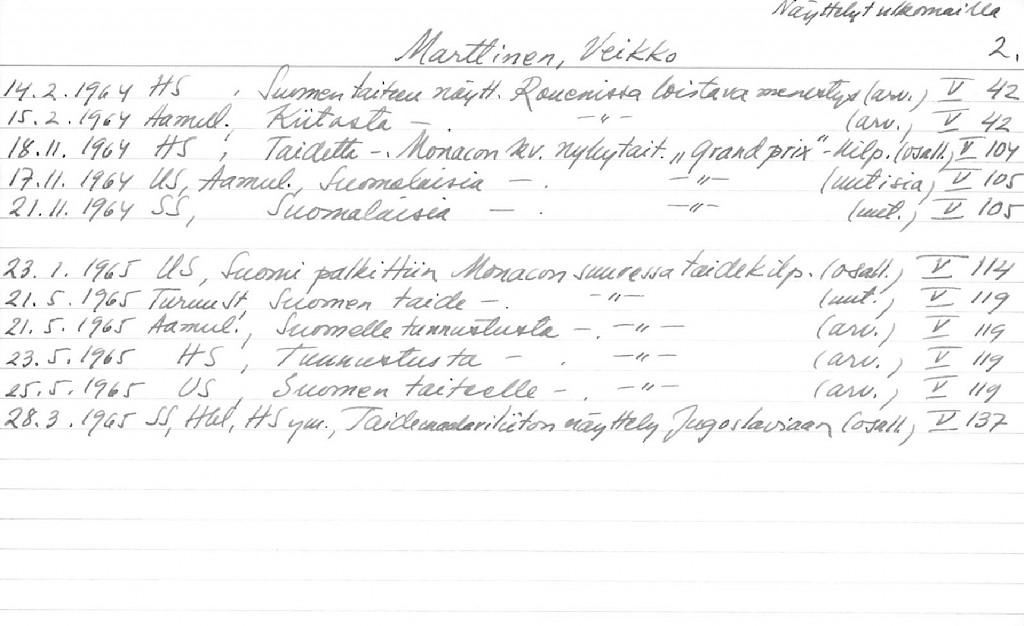 Näyttelyt ulkomailla
Marttinen, Veikko 2.
14.2.1964 HS , Suomen taiteen näytt. Rouenissa loistava menestys (arv.) V 42
15.2.1964 Aamul., Kiitosta — . —"— (arv.) V 42
18.11.1964 HS , Taidetta —. Monacon kv. nykytait. „Grand prix"-kilp. (osall.) V 104
17.11.1964 US, Aamul., Suomalaisia — . —"— (uutisia) V 105
21.11.1964 SS, Suomalaisia — . —"— (uut.) V 105
23.1.1965 US, Suomi palkittiin Monacon suuressa taidekilp. (osall.) V 114
21.5.1965 Turunst, Suomen taide —. —"— (uut.) V 119
21.5.1965 Aamul., Suomelle tunnustusta —. —"— (arv.) V 119
23.5.1965 HS , Tunnustusta — . —"— (arv.) V 119
25.5.1965 US , Suomen taiteelle —. —"— (arv.) V 119
28.3.1965 SS, Hbl, HS ym., Taidemaalariliiton näyttely Jugoslaviaan (osall.) V 137